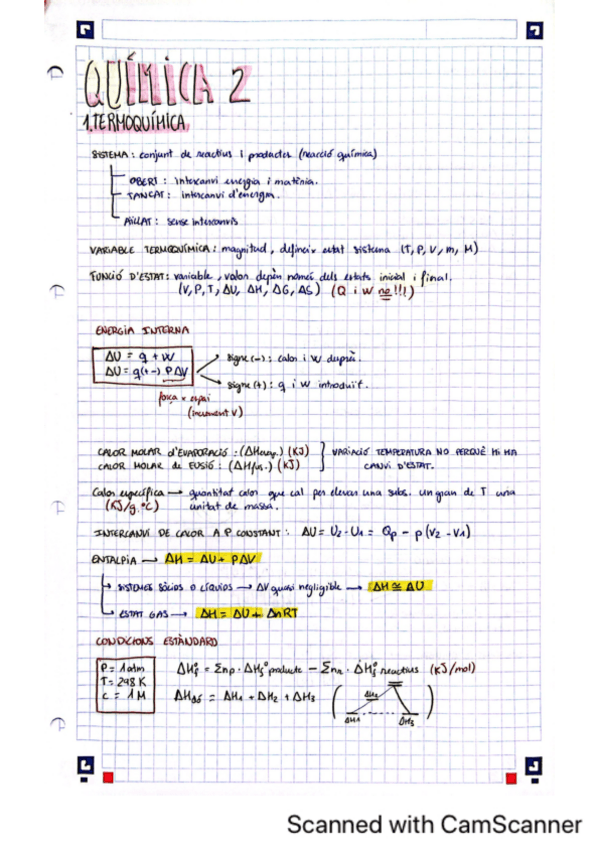 QUÍMICA 2
1. TERMOQUÍMICA
SISTEMA: conjunt de reactius i productes (reacció química)
OBERT: Intercanvi energia i matèria.
TANCAT: intercanvi d'energia.
AÏLLAT: sense intercanvis
VARIABLE TERMOQUÍMICA: magnitud, definir estat sistema (T, P, V, m, M)
FUNCIÓ D'ESTAT: variable, valor depèn només dels estats inicial i final.
(V, P, T, ΔU, ΔH, ΔG, ΔS) (Q i W no!!!)
ENERGIA INTERNA
ΔU = q + W
ΔU = q(+-) PΔV
signe (-): calor i W després.
signe (+): q i W introduït.
força x espai
(increment V)
CALOR MOLAR d'EVAPORACIÓ: (ΔHevap.) (KJ)
CALOR MOLAR de FUSIÓ: (ΔHfus.) (KJ)
VARIACIÓ TEMPERATURA NO PERQUÈ HI HA
CANVI D'ESTAT.
Calor específica → quantitat calor que cal per elevar una subs. un grau de T una
(KJ/g.ºC) unitat de massa.
INTERCANVI DE CALOR A P CONSTANT: ΔU = U2 - U1 = Qp - p(V2 - V1)
ENTALPIA → ΔH = ΔU + PΔV
SISTEMES SÒLIDS O LÍQUIDS → ΔV quasi negligible → ΔH ≅ ΔU
ESTAT GAS → ΔH = ΔU + ΔnRT
CONDICIONS ESTÀNDARD
P = 1 atm
T = 298 K
C = 1 M
ΔHºf = Σnp · ΔHºf producte - Σnr · ΔHºf reactius (KJ/mol)
ΔH = ΔH1 + ΔH2 + ΔH3
ΔH2
ΔH1
ΔH3
Scanned with CamScanner